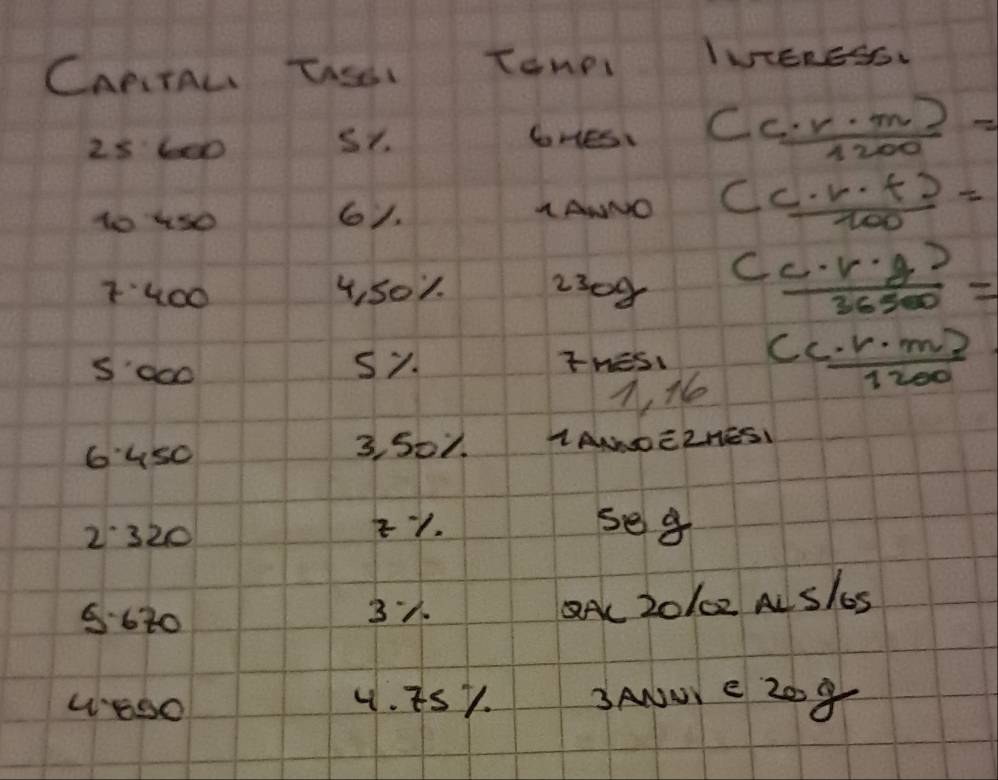 CAPITALI TASSI TEMPI INTERESSI
25.600 5% 6 MESI (c.r.m) =
1200
10.450 6% 1 ANNO (c.r.t) =
100
7.400 4,50% 230g (c.r.g) =
36500
5.000 5% 7 MESI (c.r.m)
1200
1,16
6.450 3,50% 1 ANNO E 2 MESI
2.320 7% g
5.670 3% DAL 20/02 AL 5/05
4.75% 3 ANNI E 20g